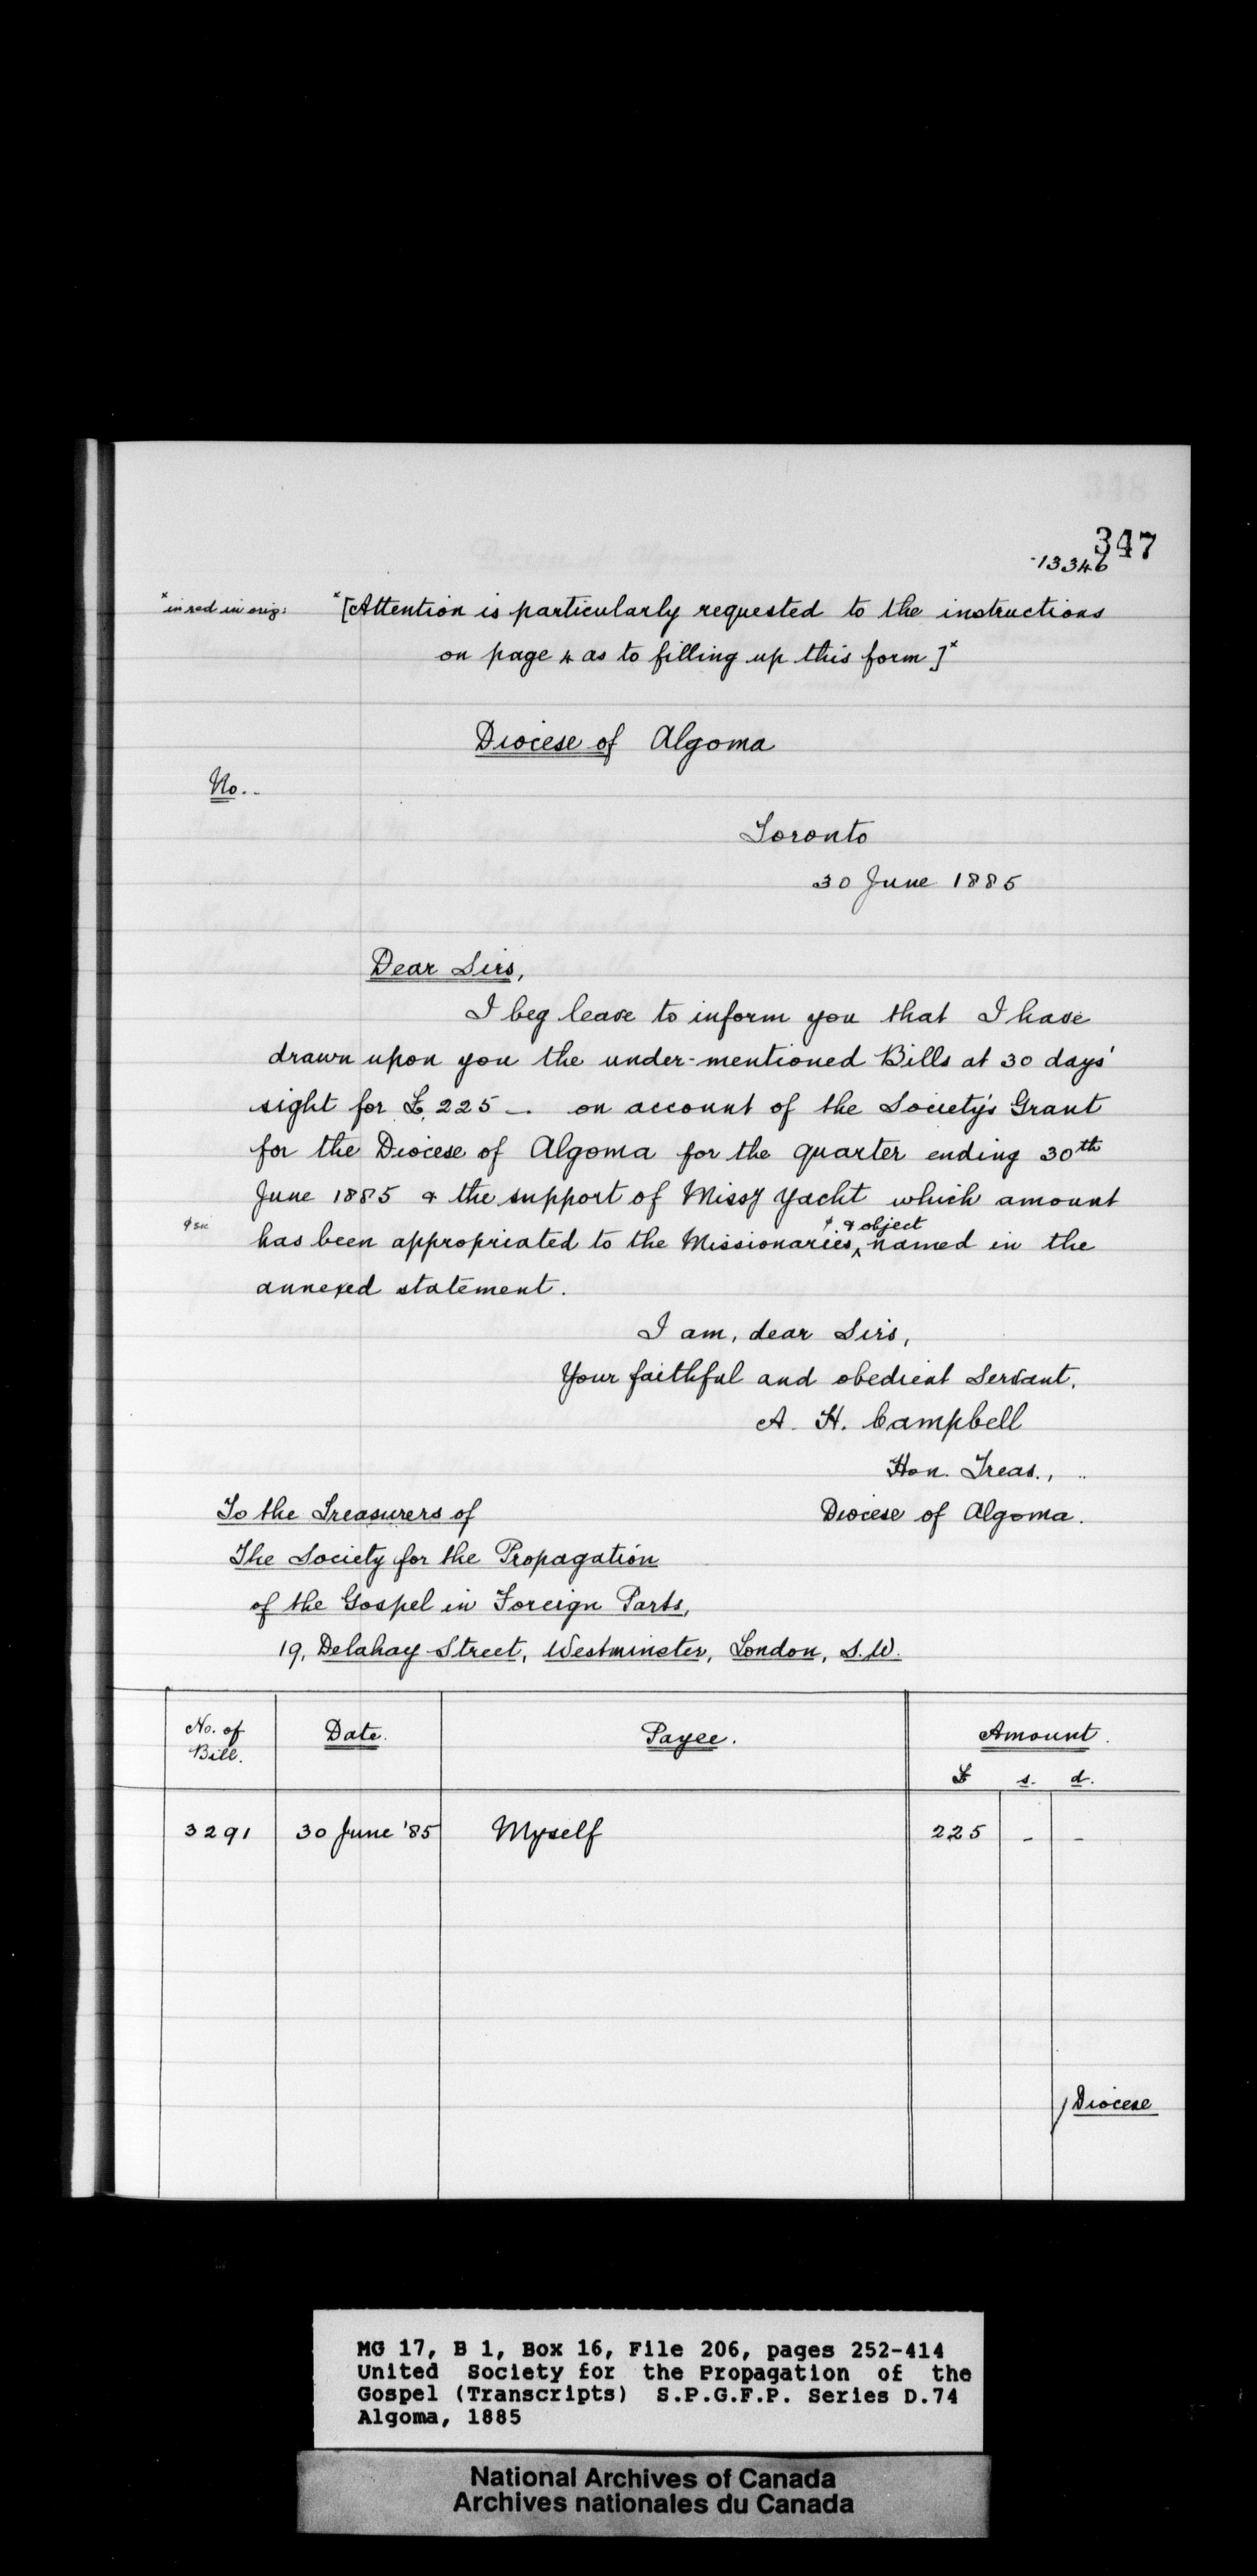 347
13346
* in red in orig:
*[Attention is particularly requested to the instructions
on page 4 as to filling up this form]*
Diocese of Algoma
No..
Toronto
30 June 1885
Dear Sirs,
I beg leave to inform you that I have
drawn upon you the under-mentioned Bills at 30 days'
sight for £225 -. on account of the Society's Grant
for the Diocese of Algoma for the quarter ending 30th
June 1885 & the support of Missy Yacht which amount
sic
& object
has been appropriated to the Missionaries, named in the
annexed statement.
I am, dear Sirs,
Your faithful and obedient Servant,
A. H. Campbell
Hon. Treas.,
Diocese of Algoma.
To the Treasurers of
The Society for the Propagation
of the Gospel in Foreign Parts,
19, Delahay Street, Westminster, London, S.W.
No. of Bill. Date. Payee. Amount.
£ s. d.
3291 30 June '85 Myself 225 - -
/Diocese
MG 17, B 1, Box 16, File 206, pages 252-414
United Society for the Propagation of the
Gospel (Transcripts) S.P.G.F.P. Series D.74
Algoma, 1885
National Archives of Canada
Archives nationales du Canada